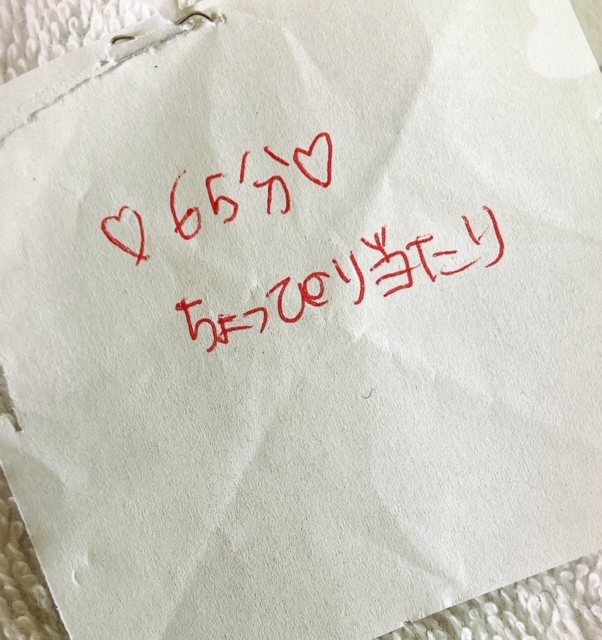 ♡65分♡
ちょっぴり当たり